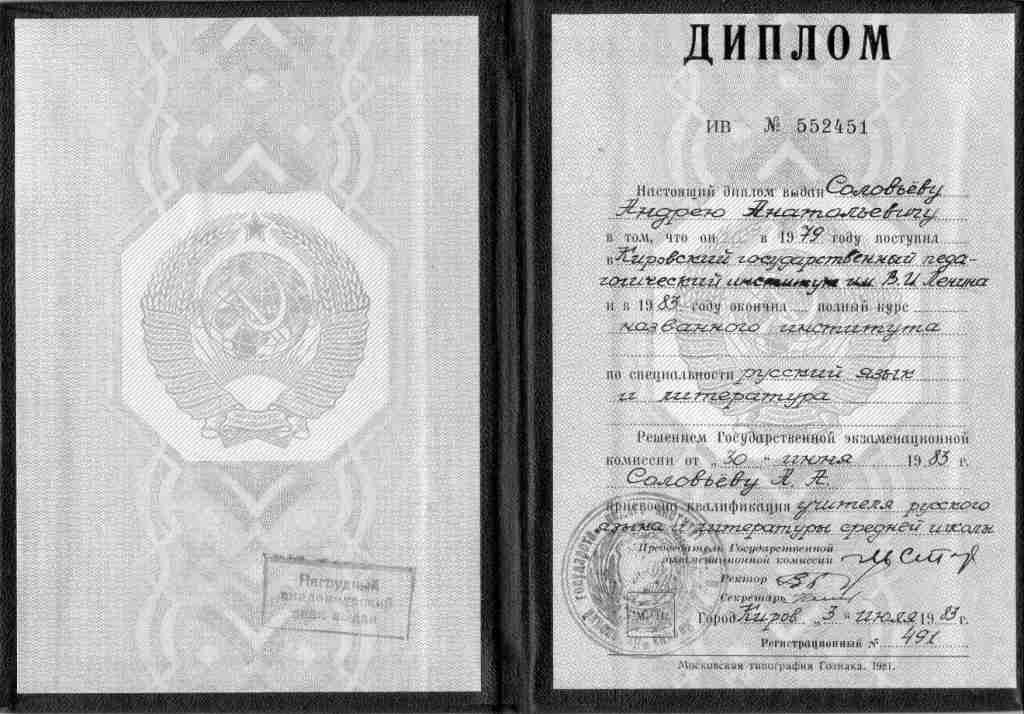 Нагрудный
академический
знак выдан
ДИПЛОМ
ИВ № 552451
Настоящий диплом выдан Соловьёву
Андрею Анатольевичу
в том, что он в 1979 году поступил
в Кировский государственный педа-
гогический институт им. В. И. Ленина
и в 1983 году окончил полный курс
названного института
по специальности русский язык
и литература
Решением Государственной экзаменационной
комиссии от „30“ июня 1983 г.
Соловьёву А. А.
присвоена квалификация учителя русского
языка и литературы средней школы
Председатель Государственной
экзаменационной комиссии
Ректор
Секретарь
Город Киров „3“ июля 1983 г.
Регистрационный № 491
Московская типография Гознака. 1981.